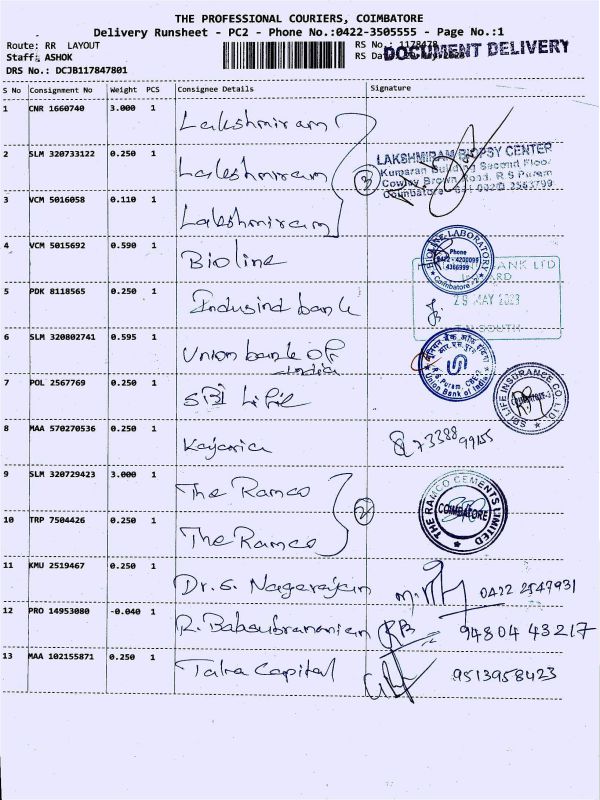 THE PROFESSIONAL COURIERS, COIMBATORE
Delivery Runsheet - PC2 - Phone No.:0422-3505555 - Page No.:1
Route: RR LAYOUT
RS No.: 1178478
Staff: ASHOK
RS Da
DOCUMENT DELIVERY
DRS No.: DCJB117847801
S No Consignment No Weight PCS Consignee Details Signature
1 CNR 1660740 3.000 1 Lakshmiram
2 SLM 320733122 0.250 1 Lakshmiram
3
LAKSHMIRAM BIOPSY CENTER
Kumaran Building Second Floor
Cowley Brown Road, R.S Puram
3 VCM 5016058 0.110 1 Lakshmiram
4 VCM 5015692 0.590 1 Bioline
BIOLINE LABORATORY
Phone
0422 - 4200099
4366999
Coimbatore
ANK LTD
5 PDK 8118565 0.250 1 Indusind bank
29 MAY 2023
SOUTH
6 SLM 320802741 0.595 1 Union bank of
India
R S Puram, CBE
Union Bank of India
7 POL 2567769 0.250 1 SBI Life
SBI LIFE INSURANCE CO. LTD.
8 MAA 570270536 0.250 1 Kajaria
73388 99155
9 SLM 320729423 3.000 1 The Ramco
2
THE RAMCO CEMENTS LIMITED
COIMBATORE
10 TRP 7504426 0.250 1 The Ramco
11 KMU 2519467 0.250 1 Dr. S. Nagarajan
0422 2547931
12 PRO 14953080 -0.040 1 R. Babsubramanian
94804 43217
13 MAA 102155871 0.250 1 Talra Capital
9513958423